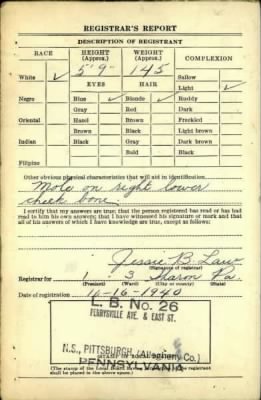 REGISTRAR'S REPORT
DESCRIPTION OF REGISTRANT
RACE
HEIGHT (Approx.)
WEIGHT (Approx.)
COMPLEXION
White ✓
5'9"
145
Sallow
EYES
HAIR
Light ✓
Negro
Blue ✓
Blonde ✓
Ruddy
Gray
Red
Dark
Oriental
Hazel
Brown
Freckled
Brown
Black
Light brown
Indian
Black
Gray
Dark brown
Bald
Black
Filipino
Other obvious physical characteristics that will aid in identification
Mole on right lower
cheek bone
I certify that my answers are true; that the person registered has read or has had
read to him his own answers; that I have witnessed his signature or mark and that
all of his answers of which I have knowledge are true, except as follows:
Jessie B. Law
(Signature of registrar)
Registrar for 1 3 Sharon Pa.
(Precinct) (Ward) (City or county) (State)
Date of registration 10-16-1940
L. B. No. 26
PERRYSVILLE AVE. & EAST ST.
N.S., PITTSBURGH, (Allegheny Co.)
PENNSYLVANIA
(STAMP OF LOCAL
(The stamp of the Local Board having jurisdiction of the registrant
shall be placed in the above space.)